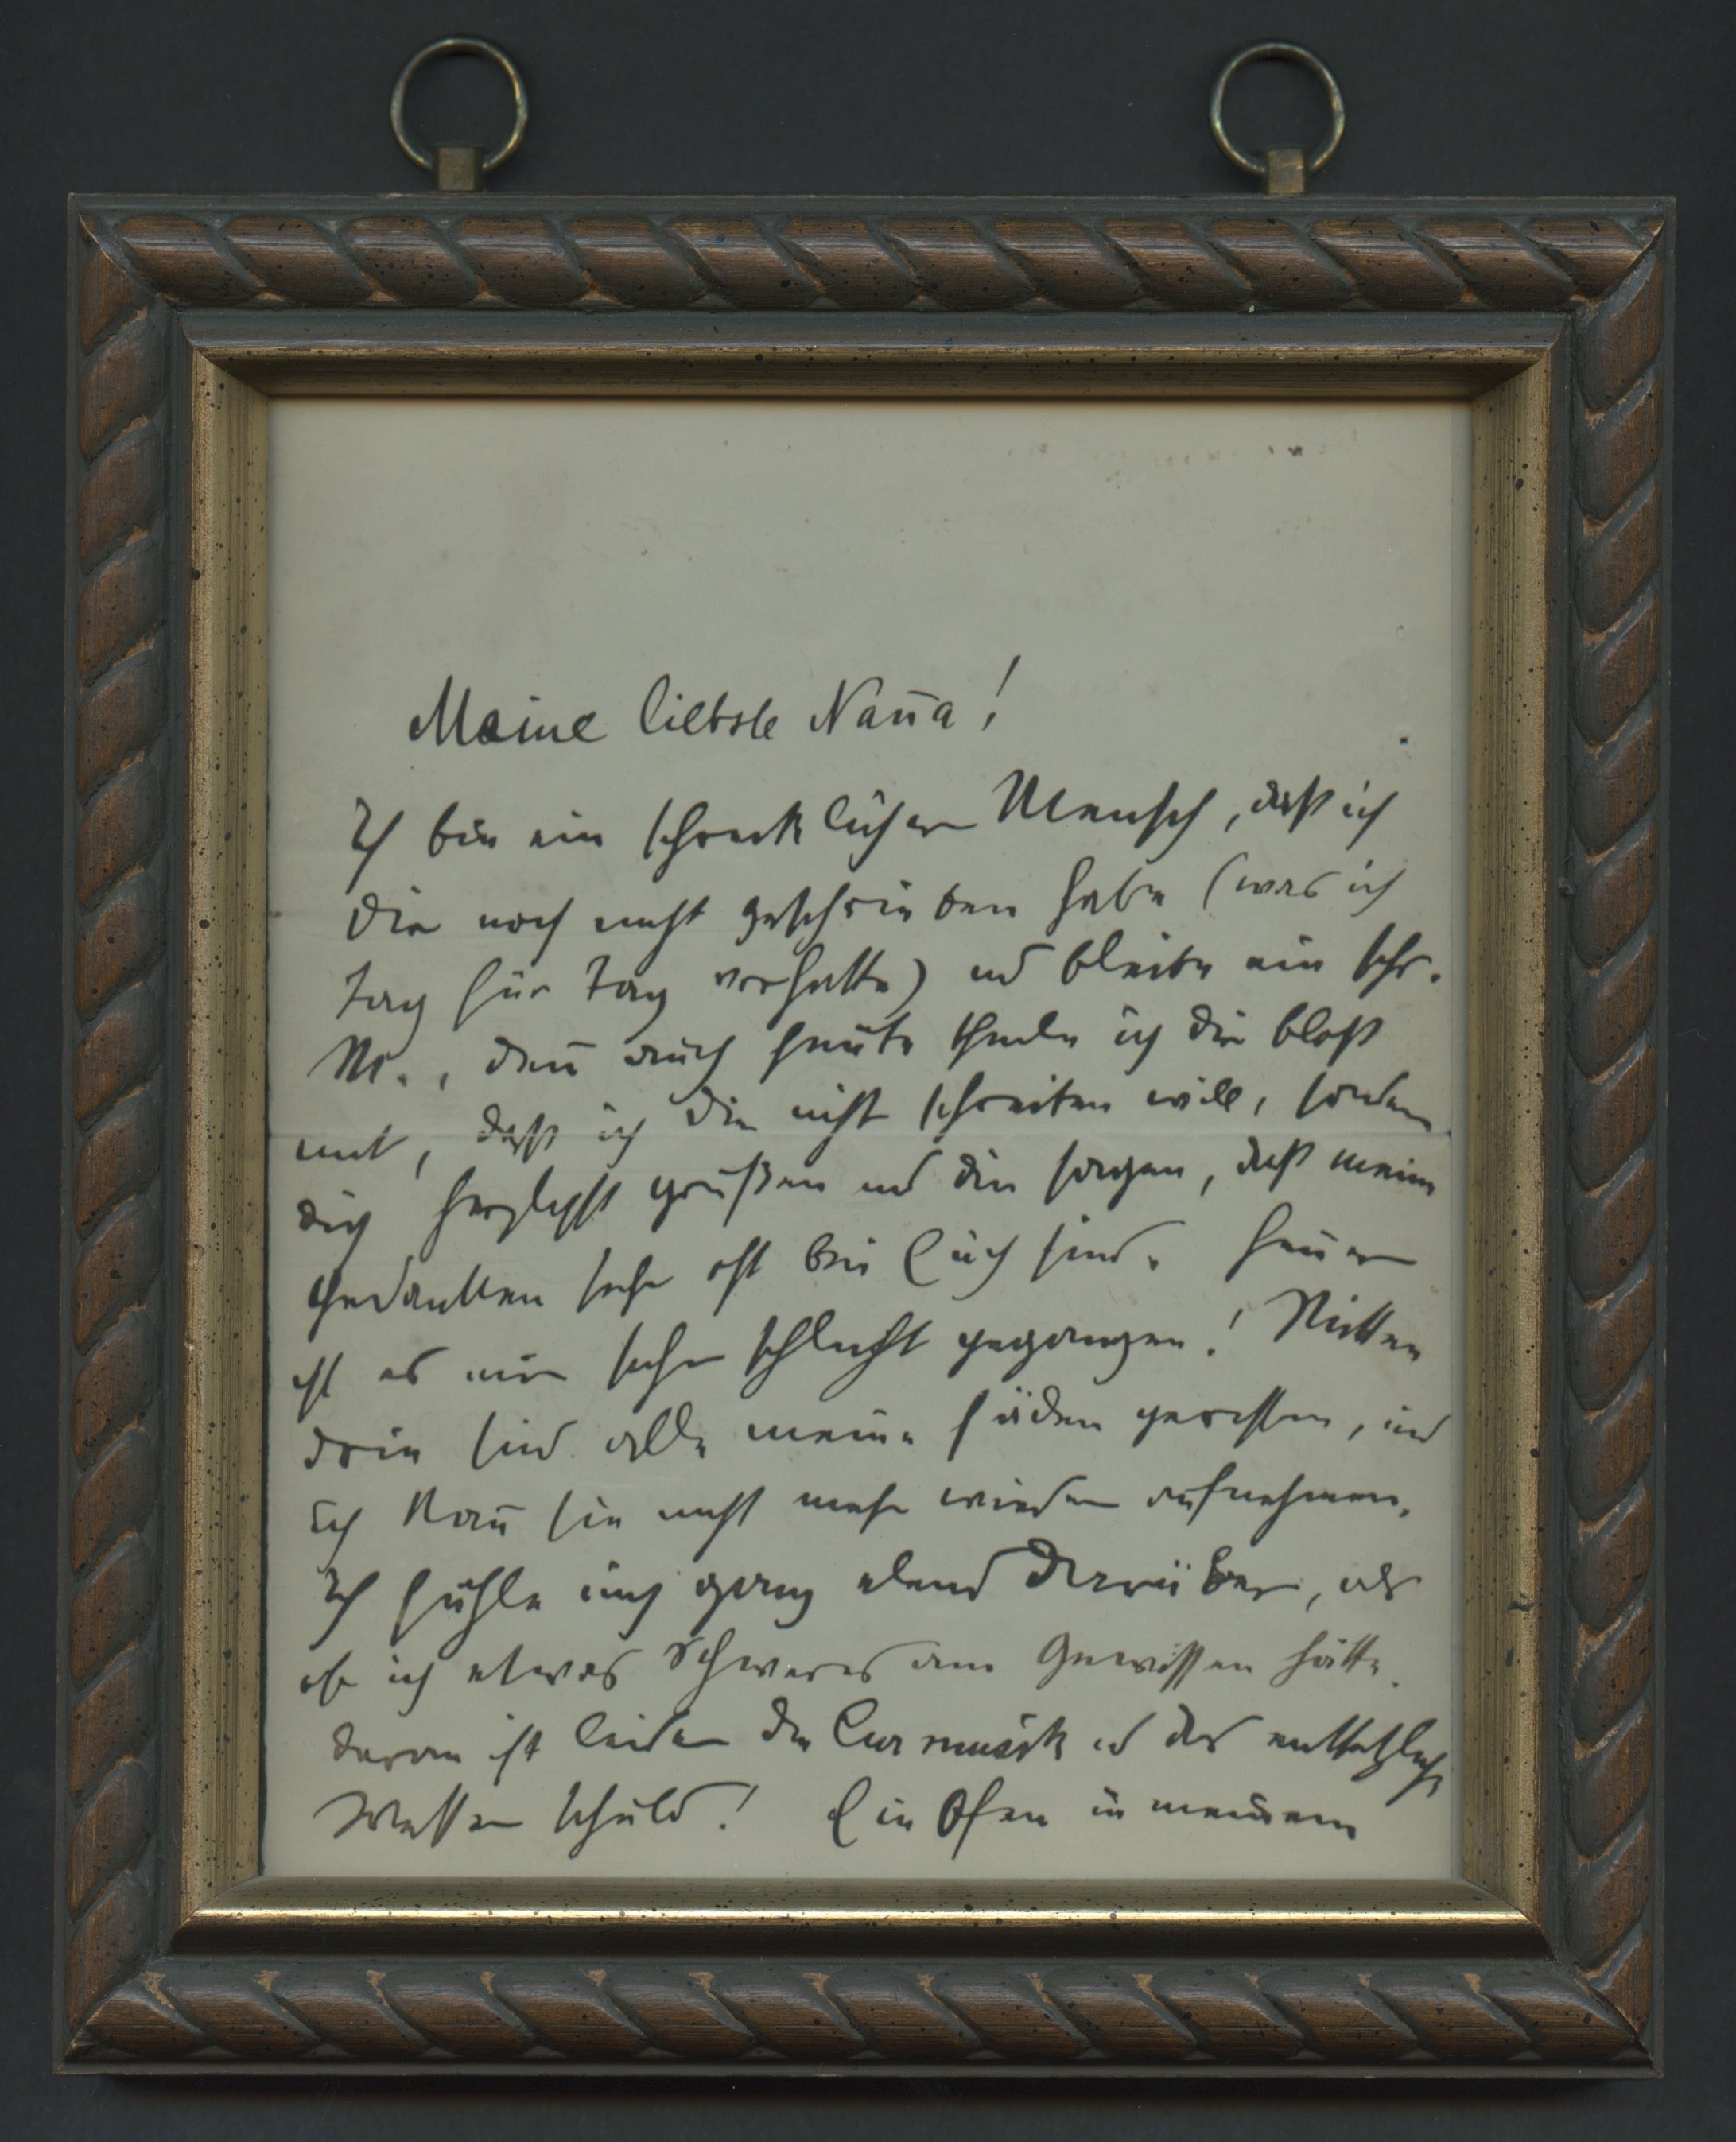 Meine liebste Nan̄a!
Ich bin ein schrecklicher Mensch, daß ich
Dir noch nicht geschrieben habe (was ich
Tag für Tag vorhatte) und bleibe ein schr.
M., den̄ auch heute theile ich Dir bloß
mit, daß ich Dir nicht schreiben will, sondern
Dich herzlichst grüßen und Dir sagen, daß meine
Gedanken sehr oft bei Euch sind. Heuer
ist es mir sehr schlecht gegangen! Mitten
drin sind alle meine Fäden gerissen, und
ich kan̄ sie nicht mehr wieder aufnehmen.
Ich fühle mich ganz elend darüber, als
ob ich etwas Schweres am Gewissen hätte.
Daran ist leider die Curmusik u das entsetzliche
Wetter schuld! Ein Ofen in meinem